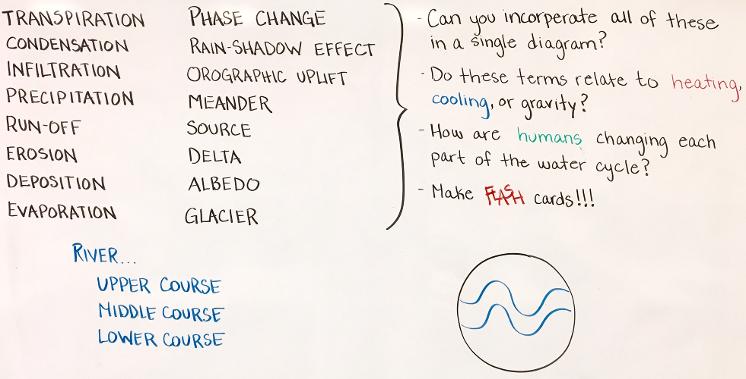 TRANSPIRATION
CONDENSATION
INFILTRATION
PRECIPITATION
RUN-OFF
EROSION
DEPOSITION
EVAPORATION
PHASE CHANGE
RAIN-SHADOW EFFECT
OROGRAPHIC UPLIFT
MEANDER
SOURCE
DELTA
ALBEDO
GLACIER
- Can you incorperate all of these
in a single diagram?
- Do these terms relate to heating,
cooling, or gravity?
- How are humans changing each
part of the water cycle?
- Make FLASH cards!!!
RIVER...
UPPER COURSE
MIDDLE COURSE
LOWER COURSE